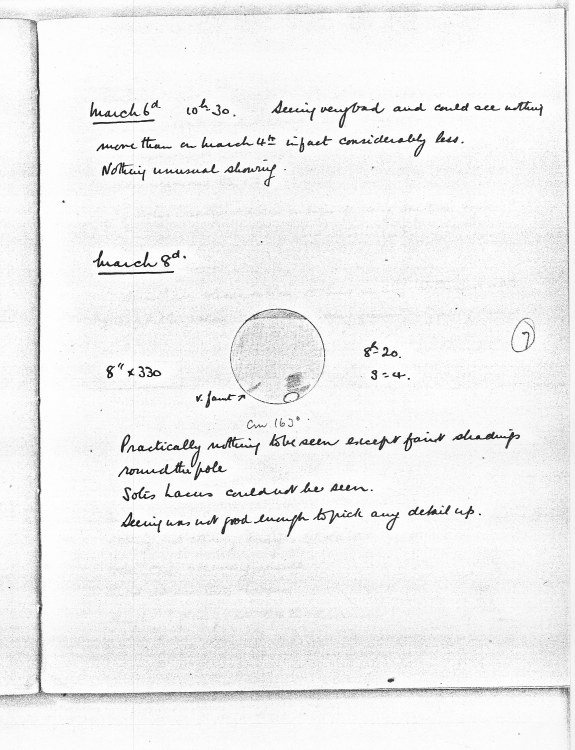 March 6d 10h-30. Seeing very bad and could see nothing
more than on March 4th in fact considerably less.
Nothing unusual showing.
March 8d.
7
8h-20.
8" x 330
S=4.
v. faint
CM 163°
Practically nothing to be seen except faint shadings
round the pole
Solis Lacus could not be seen.
Seeing was not good enough to pick any detail up.